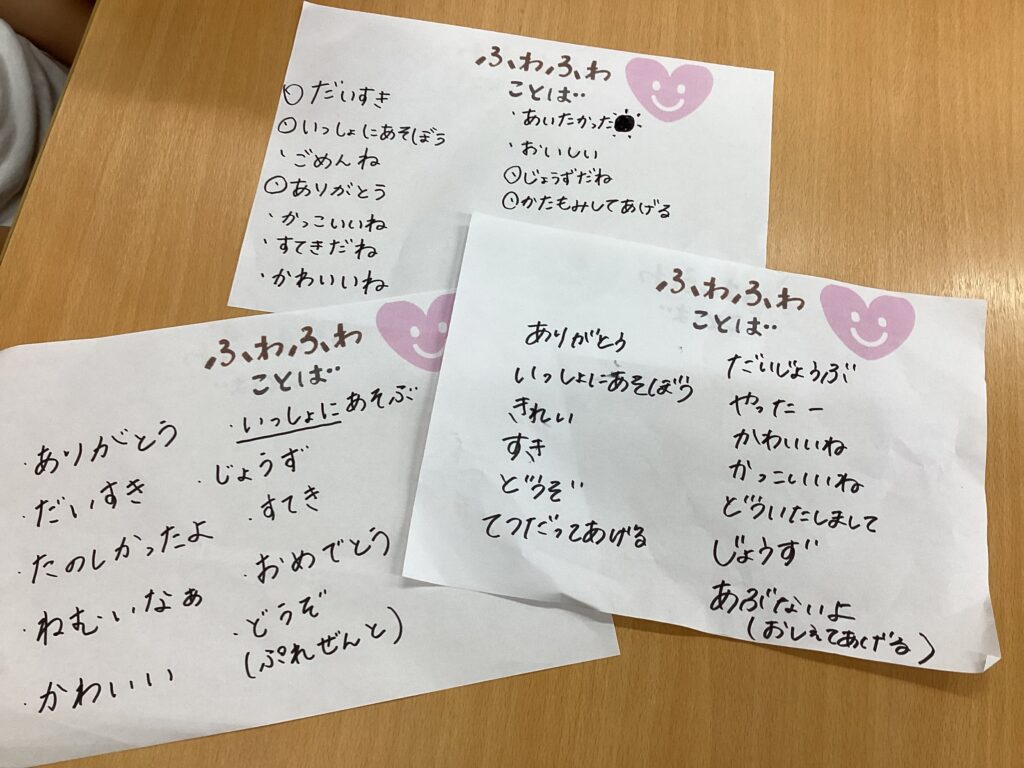 ふわふわ
ことば‥
だいすき
いっしょにあそぼう
ごめんね
ありがとう
かっこいいね
すてきだね
かわいいね
あいたかった
おいしい
じょうずだね
かたもみしてあげる
ふわふわ
ことば‥
ありがとう
だいすき
たのしかったよ
ねむいなぁ
かわいい
いっしょにあそぶ
じょうず
すてき
おめでとう
どうぞ
(ぷれぜんと)
ふわふわ
ことば‥
ありがとう
いっしょにあそぼう
きれい
すき
どうぞ
てつだってあげる
だいじょうぶ
やったー
かわいいね
かっこいいね
どういたしまして
じょうず
あぶないよ
(おしえてあげる)